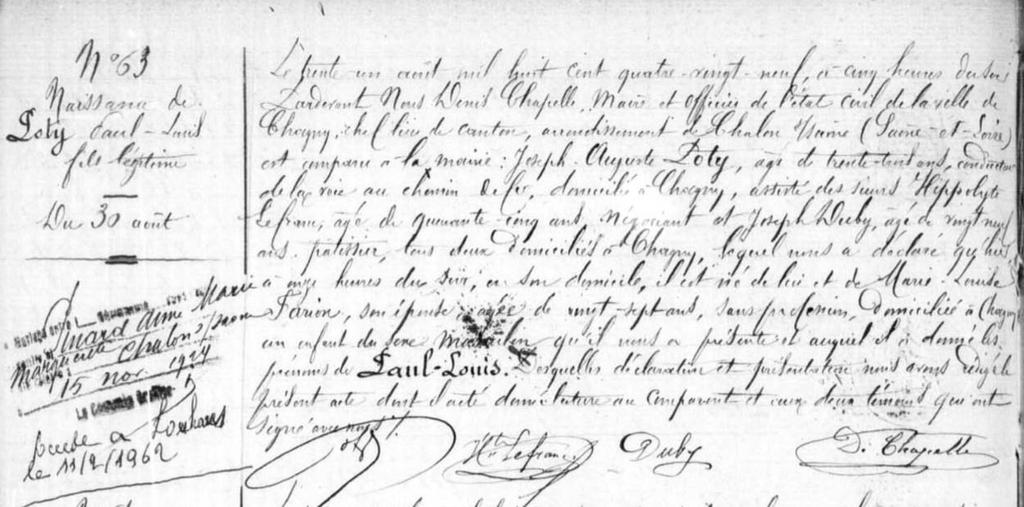 N° 63
Naissance de
Poty Paul-Louis
fils légitime
Du 30 août
Marie
Anne
Marguerite Chalon s/Saone
15 nov. 1924
décédé à Louhans
le 11/2/1962
Le trente un août mil huit cent quatre-vingt-neuf, à cinq heures du soir
Pardevant Nous Denis Chapelle, Maire et officier de l'état civil de la ville de
Chagny, chef lieu de canton, arrondissement de Chalon s/Saône (Saône-et-Loire)
est comparu à la mairie: Joseph-Auguste Poty, âgé de trente-trois ans, conducteur
de la voie au chemin de fer, domicilié à Chagny, assisté des sieurs Hippolyte
Lefranc, âgé de quarante-cinq ans, négociant et Joseph Duby, âgé de vingt neuf
ans, patissier, tous deux domiciliés à Chagny, lequel nous a déclaré qu'hier,
à onze heures du soir, en son domicile, il est né de lui et de Marie-Louise
son épouse âgée de vingt-sept ans, sans profession, domiciliée à Chagny
un enfant du sexe masculin qu'il nous a présenté et auquel il a donné les
prénoms de Paul-Louis. Desquelles déclaration et présentation nous avons rédigé le
présent acte dont d'acte donné lecture au comparant et aux deux témoins qui ont
signé avec nous.
Hte Lefranc Duby D. Chapelle